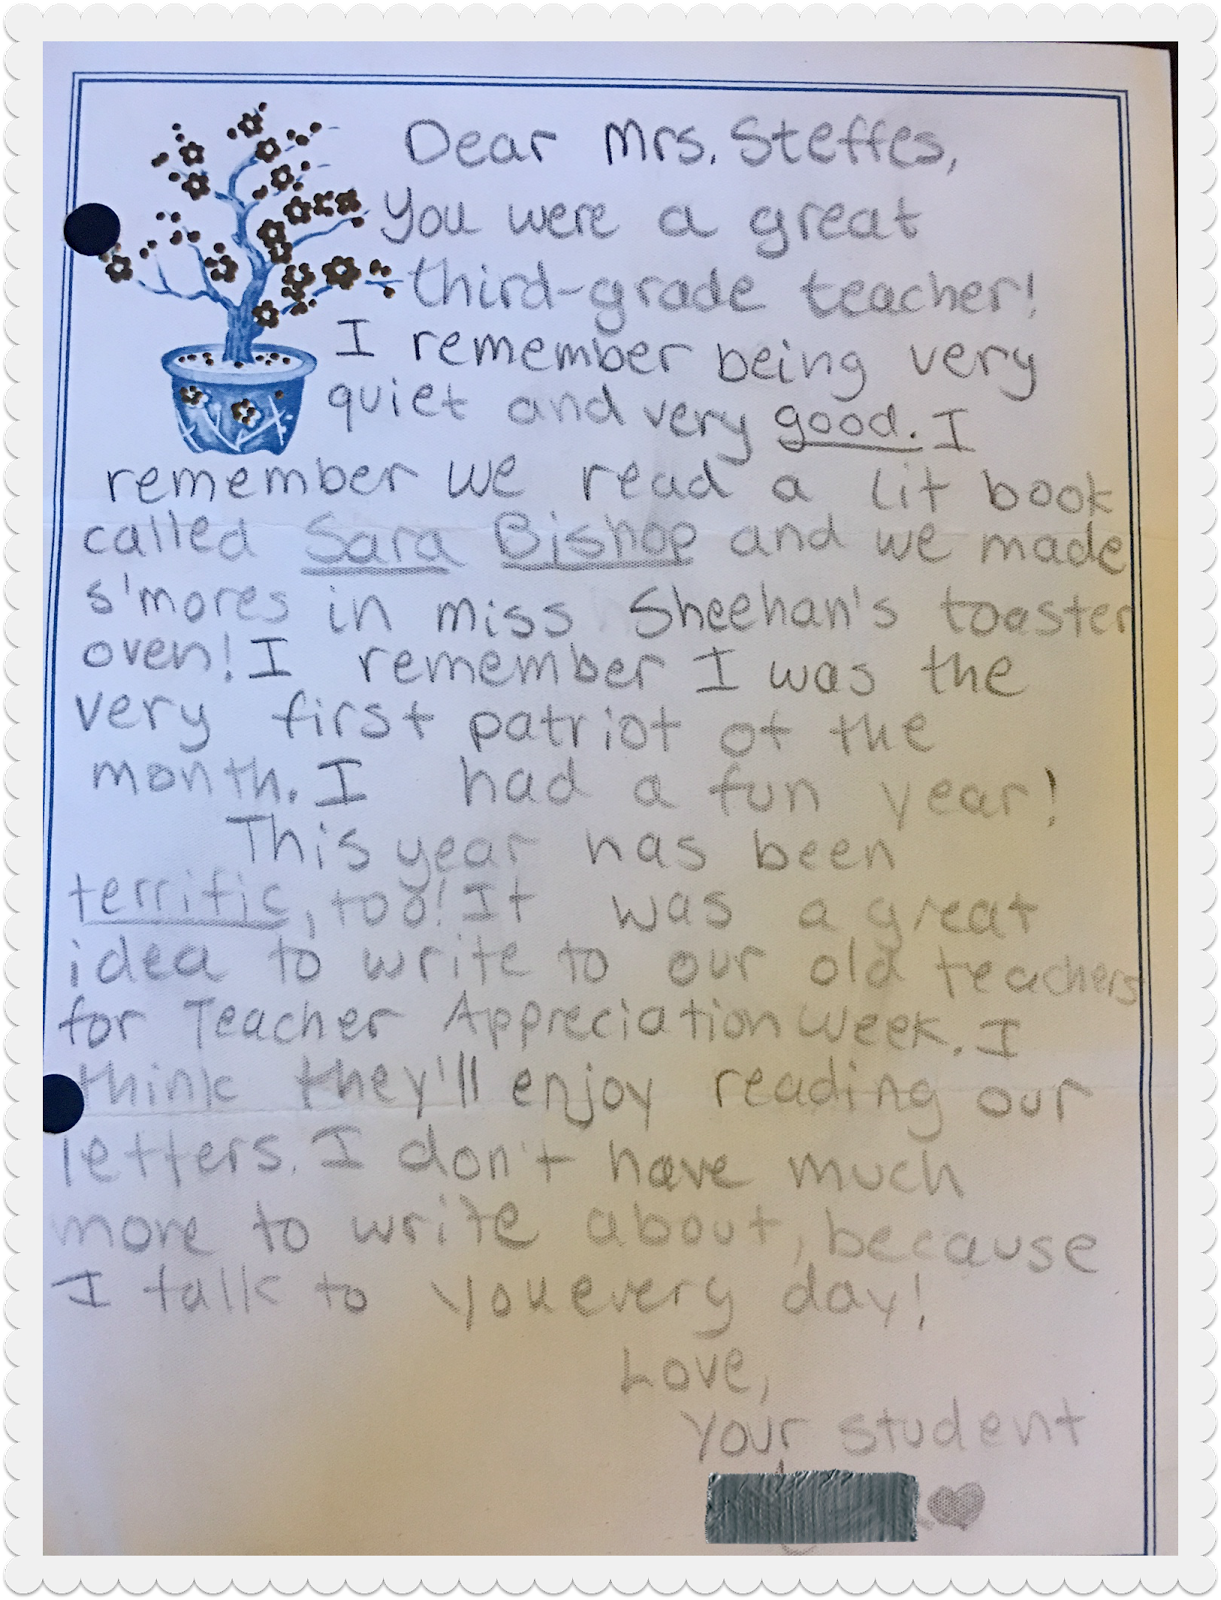 Dear Mrs. Steffes,
You were a great
third-grade teacher!
I remember being very
quiet and very good. I
remember we read a lit book
called Sara Bishop and we made
s'mores in miss Sheehan's toaster
oven! I remember I was the
very first patriot of the
month. I had a fun year!
This year has been
terrific, too! It was a great
idea to write to our old teachers
for Teacher Appreciation Week. I
think they'll enjoy reading our
letters. I don't have much
more to write about, because
I talk to you every day!
Love,
Your student